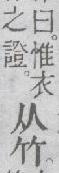 曰。惟衣从竹。
之證。